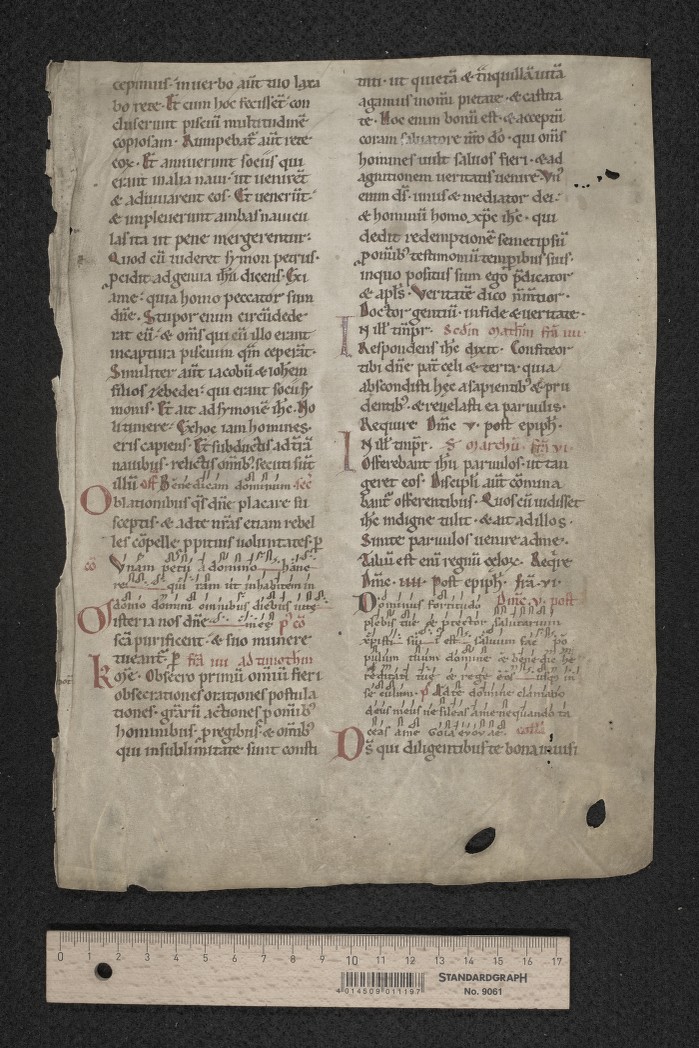 cepimus· in uerbo aut̄ tuo laxa
bo rete· Et cum hoc fecissēt con
cluserunt pisciū multitudinē
copiosam· Rumpebat̄ aut̄ rete
eoꝝ· Et annuerunt sociis qui
erant in alia naui· ut uenirēt
& adiuuarent eos· Et uenerūt·
& impleuerunt ambas nauicu
las ita ut pene mergerentur·
Quod cū uideret symon petrus·
ꝓcidit ad genua ih̄u dicens· Exi
a me· quia homo peccator sum
dn̄e· Stupor enim circūdede
rat eū· & om̄s qui cū illo erant
in captura piscium quā ceperāt·
Similiter aut̄ iacobū & iohem̄
filios zebedei· qui erant socii sy
monis· Et ait ad symonē ih̄c· No
li timere· Ex hoc iam homines
eris capiens· Et subductis ad t̄rā
nauibus· relictis omīb; secuti sūt
illū off Benedicam dominum sec̄
Oblationibus qs̄ dn̄e placare su
sceptis· & ad te nr̄as etiam rebel
les cōpelle ꝓpitius uoluntates· ꝑ
cō Vnam petii a domino hanc
re qui ram ut inhabitem in
domo domini omnibus diebus uite
Misteria nos dn̄e mee p̄ cō
scā purificent· & suo munere
tueant̄· ꝑ fr̄a iiii ad timothm̄
Kmē· Obsecro primū omiū fieri
obsecrationes orationes postula
tiones· grārū actiones ꝓ omīb;
hominibus· ꝓ regibus· & omīb;
qui in sublimitate sunt consti
tuti· ut quietā & tnquillā uitā
agamus in omi pietate· & castita
te· Hoc enim bonū est· & acceptū
coram saluatore nr̄o dō· qui om̄s
homines uult saluos fieri· & ad
agnitionem ueritatis uenire· Vn᷒
enim ds̄· unus & mediator dei·
& hominū homo xp̄c ih̄c· qui
dedit redemptionē semetipsū
ꝓ omīb; testimoniū temporibus suis·
in quo positus sum ego p̄dicator
& apls̄· Veritatē dico n̄ mentior·
Doctor gentiū· in fide & ueritate·
IN ill̄ tmp̄r· Scdm̄ Mathm̄ fr̄a iiii
Respondens ih̄c dixit· Confiteor
tibi dn̄e pat̄ celi & terra· quia
abscondisti hęc a sapientib; & pru
dentib;· & reuelasti ea paruulis·
Require Dmc̄ v· post epiph·
IN ill̄ tmp̄r· S· Marchū· fr̄a vi
Offerebant ih̄u paruulos· ut tan
geret eos· Discipli aut̄ cōmina
bant̄ offerentibus· Quos cū uidisset
ih̄c indigne tulit· & ait ad illos·
Sinite paruulos uenire ad me·
Taliū est enī regnū celoꝝ· Reqre
Dmc̄· iiii· Post epiph· Fr̄a· vi·
Dominus fortitudo Dmc̄ v· post
plebis tue & protector salutarium
xpisti sui est saluum fac po
pulum tuum domine & benedic he
reditati tue & rege eos usque in
seculum· p̄ Ad te domine clamabo
deus meus ne sileas a me nequando ta
ceas a me Gloria evovae· coll̄
Ds̄ qui diligentibus te bona inuisi
0 1 2 3 4 5 6 7 8 9 10 11 12 13 14 15 16 17
4 014509 011197
STANDARDGRAPH
No. 9061